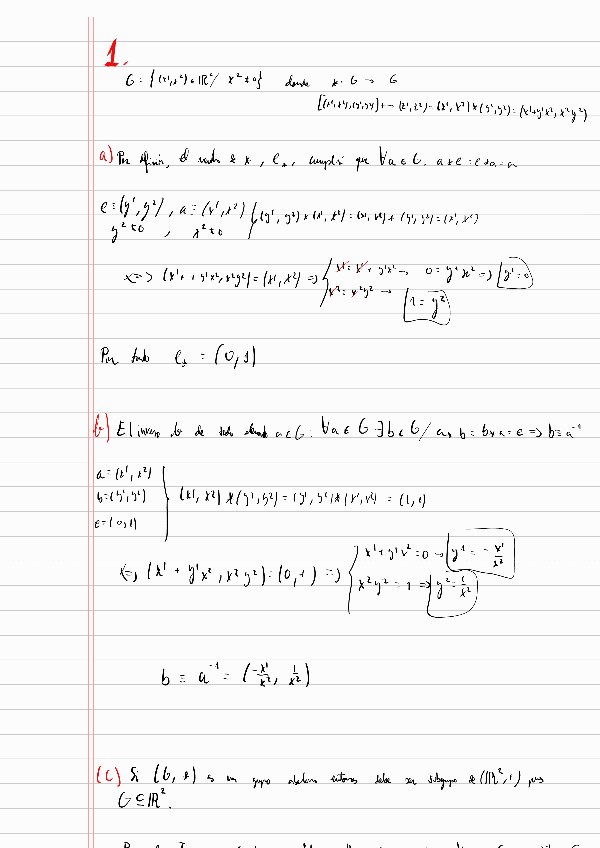 1.
G = {(x¹, x²) ∈ ℝ² / x² ≠ 0} donde *: G → G
[(x¹, x²), (y¹, y²)] → (x¹, x²) * (y¹, y²) = (x¹+y¹x², x²y²)
a) Por definición, el neutro de *, e*, cumplirá que ∀a ∈ G. a * e = e * a = a
e = (y¹, y²), a = (x¹, x²) } (y¹, y²) * (x¹, x²) = (x¹, x²) * (y¹, y²) = (x¹, x²)
y² ≠ 0, x² ≠ 0
⇐⇒ (x¹ + y¹x², x²y²) = (x¹, x²) ⇒ { x¹ = x¹ + y¹x² → 0 = y¹x² ⇒ y¹ = 0
x² = x²y² → 1 = y²
Por tanto e* = (0, 1)
b) El inverso b de todo elemento a ∈ G: ∀a ∈ G ∃b ∈ G / a * b = b * a = e ⇒ b = a⁻¹
a = (x¹, x²)
b = (y¹, y²) } (x¹, x²) * (y¹, y²) = (y¹, y²) * (x¹, x²) =
e = (0, 1)
⇐⇒ (x¹ + y¹x², x²y²) = (0, 1) ⇒ { x¹ + y¹x² = 0 → y¹ = -x¹/x²
x²y² = 1 ⇒ y² = 1/x²
b = a⁻¹ = (-x¹/x², 1/x²)
(c) Si (G, *) es un grupo abeliano entonces debe ser subgrupo de (ℝ², ) pues
G ⊆ ℝ².